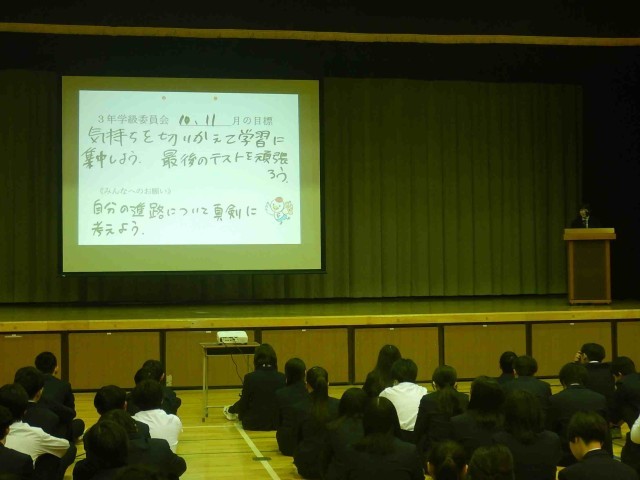 3年学級委員会 10、11 月の目標
気持ちを切りかえて学習に
集中しよう。 最後のテストを頑張
ろう。
《みんなへのお願い》
自分の進路について真剣に
考えよう。